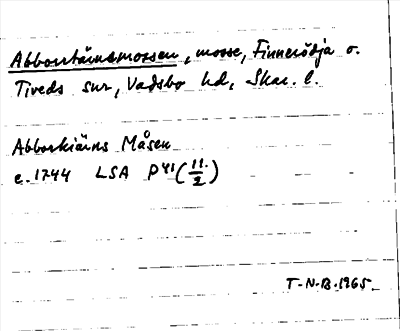 Abborrtärnsmossen, mosse, Finnerödja o.
Tiveds snr, Vadsbo hd, Skar. l.
Abborkiärns Måsen
c. 1744 LSA P41 (11/2)
T-N.B. 1965